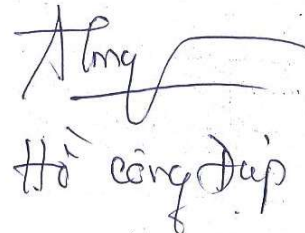 Hồ công Đạp